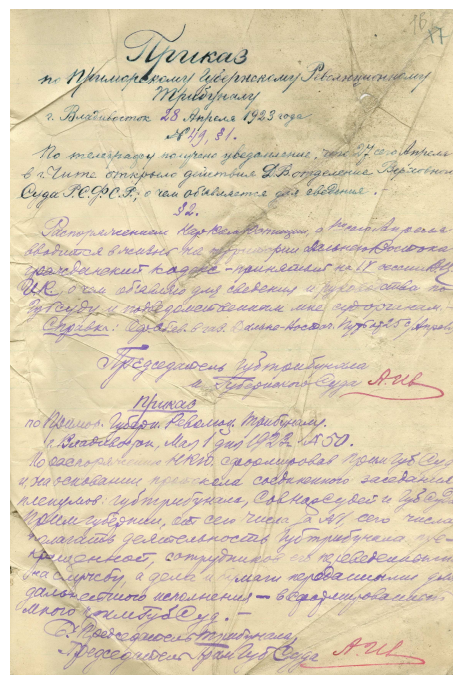 16
17
Приказ
по Приморскому Губернскому Революционному
Трибуналу
г. Владивосток 28 Апреля 1923 года
№ 49, §1.
По телеграфу получено уведомление, что 27 сего Апреля
в г. Чите открыло действия Д.В. отделение Верховного
Суда Р.С.Ф.С.Р., о чем объявляется для сведения. –
§2.
Распоряжением Апреля
вводится в жизнь на территории Дальнего Востока
гражданский кодекс – принятый на IV сессии ВЦ
ИК о чем объявляю для сведения и руководства по
Губсуду и подведомственным мне суд. органам.
Справка: 25 Апреля
Председатель Губтрибунала
и Губернского Суда
Приказ
по Примор. Губерн. Революц. Трибуналу.
г. Владивосток, Мая 1 дня 192 № 50.
По распоряжению НКЮ, сформировав ПримГубСуд
и на основании протокола соединенного заседания
пленумов Губтрибунала, Совнарсудей и ГубСуда
Примгубернии, от сего числа, а №1 сего числа
полагать деятельность Губтрибунала пре-
кращенной, сотрудников его
на службу, а дела и бумаги переданными для
дальнейшего исполнения – в сформированный
мною ПримГубСуд. –
Председатель Трибунала,
Председатель ПримГубСуда